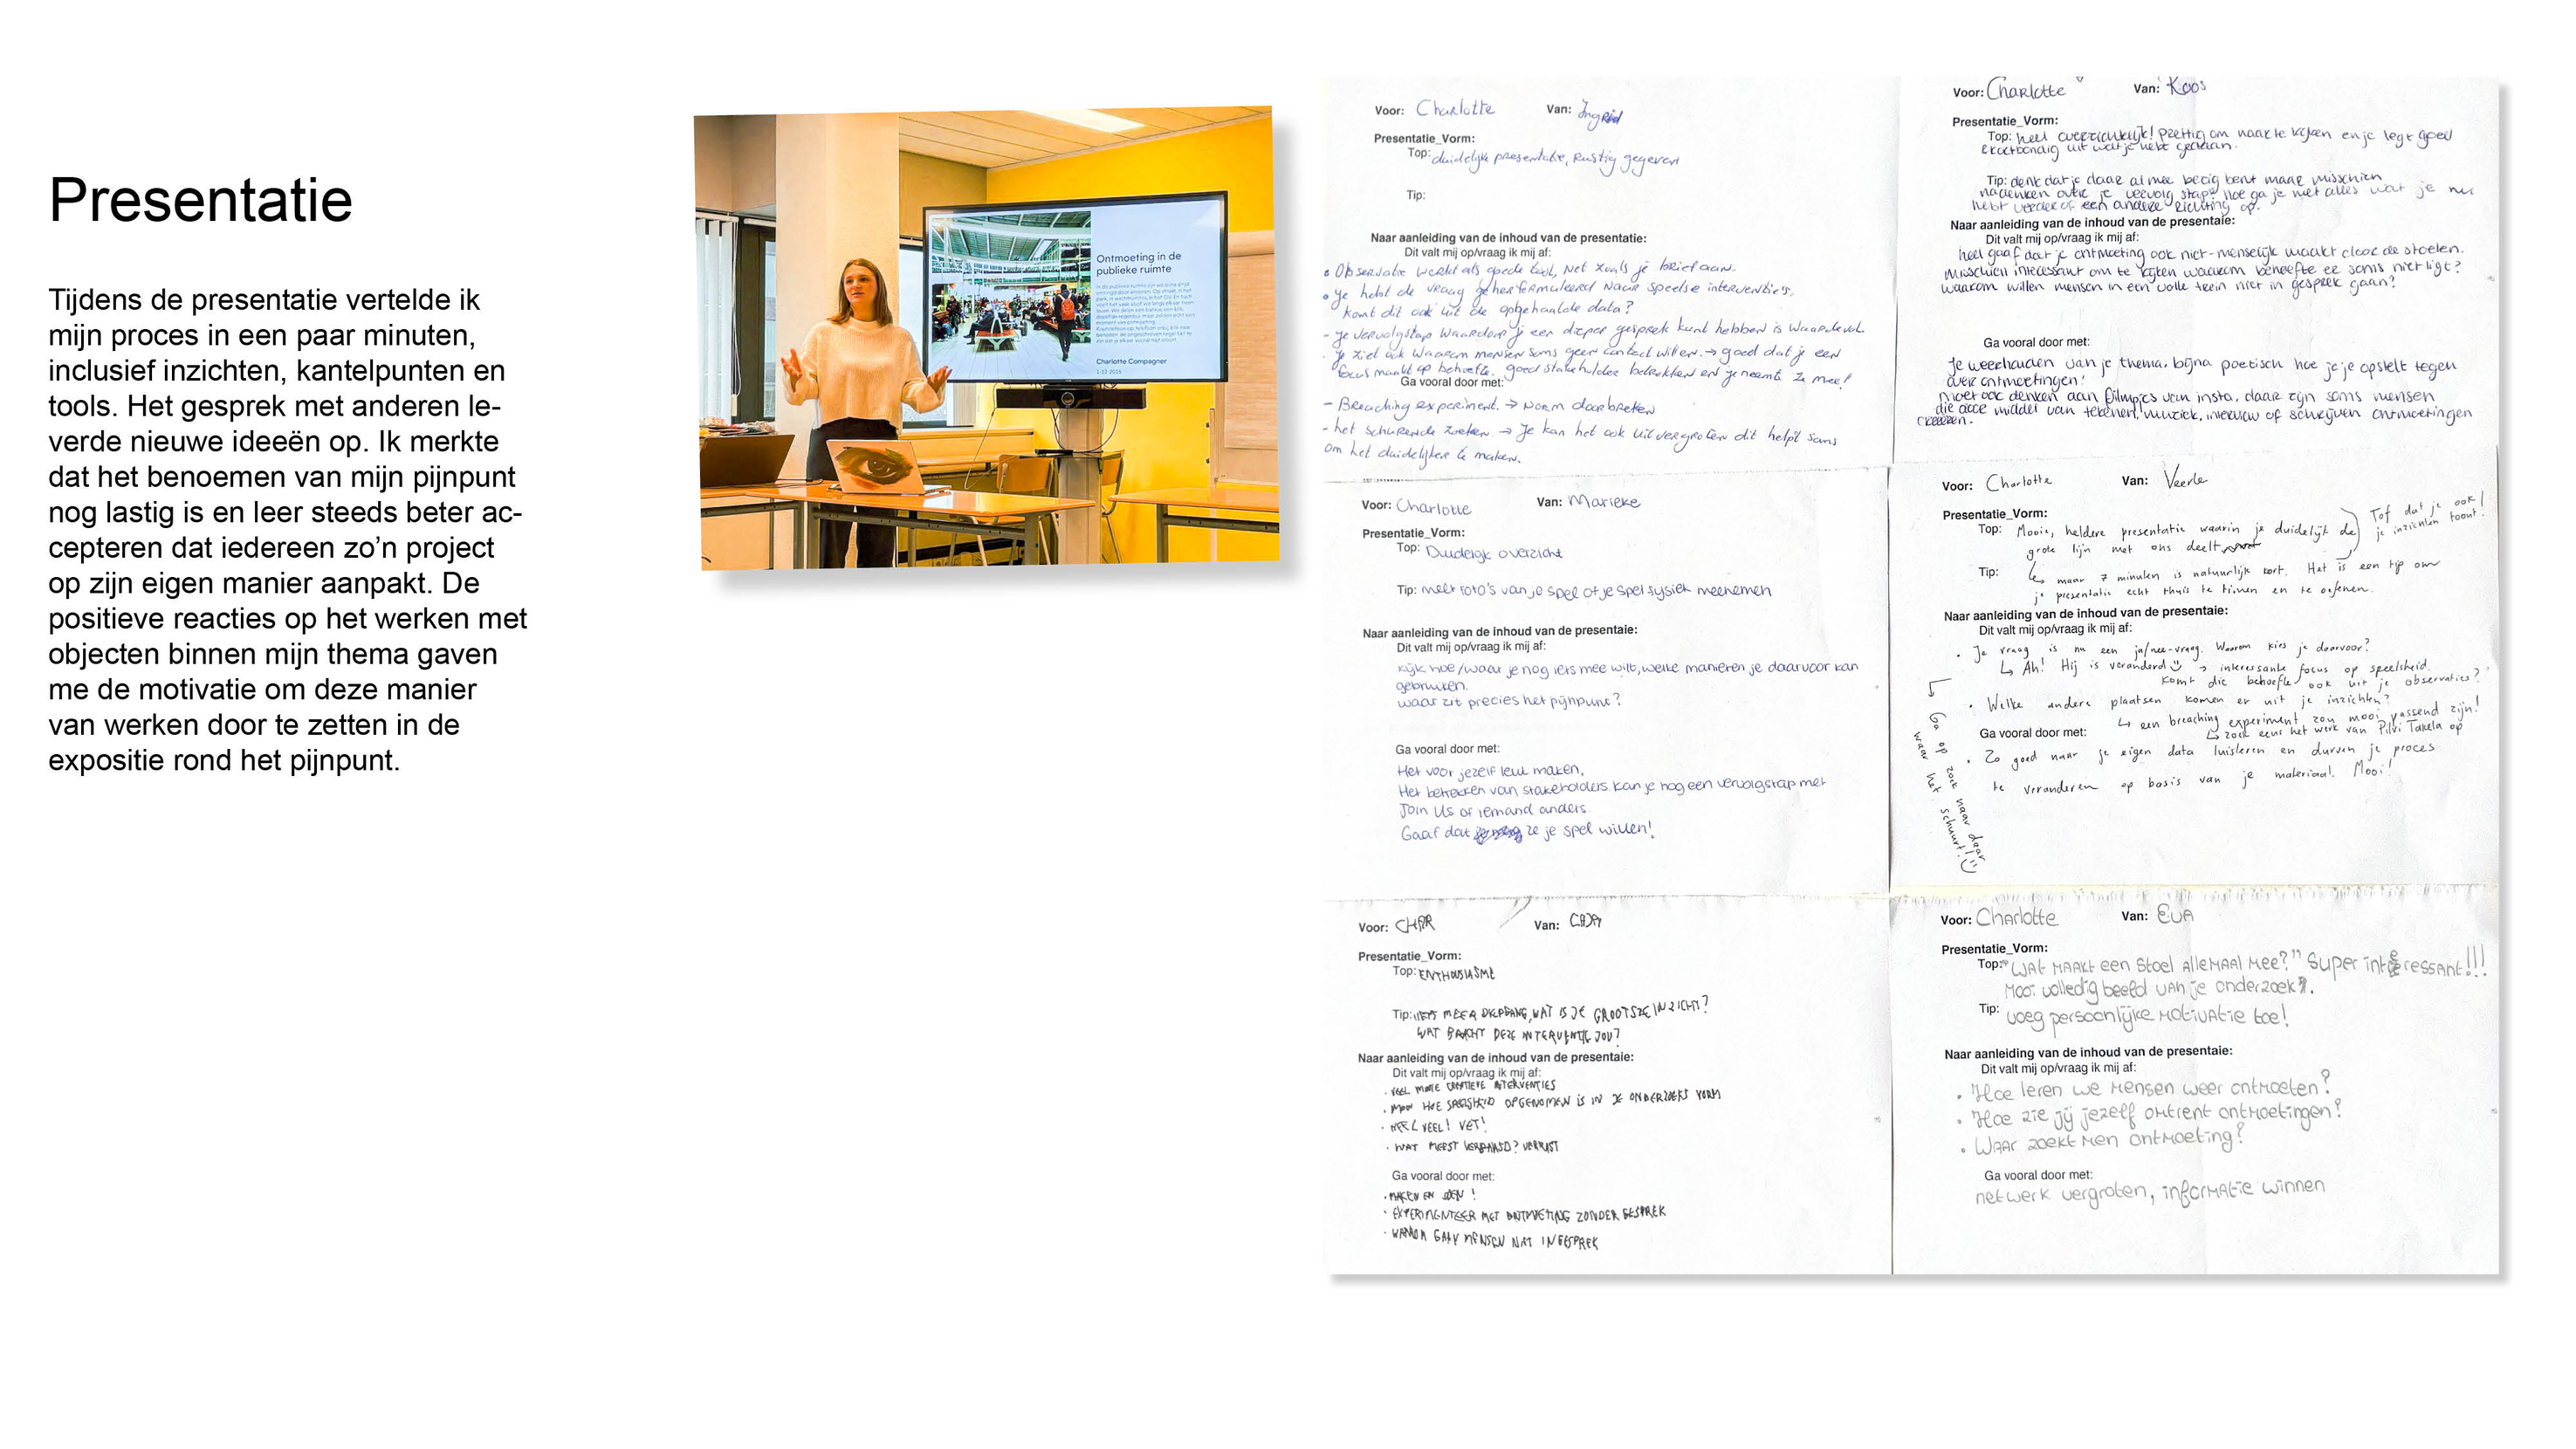 Presentatie
Tijdens de presentatie vertelde ik
mijn proces in een paar minuten,
inclusief inzichten, kantelpunten en
tools. Het gesprek met anderen le-
verde nieuwe ideeën op. Ik merkte
dat het benoemen van mijn pijnpunt
nog lastig is en leer steeds beter ac-
cepteren dat iedereen zo’n project
op zijn eigen manier aanpakt. De
positieve reacties op het werken met
objecten binnen mijn thema gaven
me de motivatie om deze manier
van werken door te zetten in de
expositie rond het pijnpunt.
Ontmoeting in de
publieke ruimte
Charlotte Compagner
1-12-2025
Voor: Charlotte Van: Ingrid
Presentatie_Vorm:
Top: duidelijke presentatie, rustig gegeven
Tip:
Naar aanleiding van de inhoud van de presentatie:
Dit valt mij op/vraag ik mij af:
• Observatie werkt als goede tool, net zoals je brief aan.
• Je hebt de vraag geherformuleerd naar speelse interventies,
komt dit ook uit de opgehaalde data?
- Je vervolgstap waardoor je een dieper gesprek kunt hebben is waardevol.
Je ziet ook waarom mensen soms geen contact willen. → goed dat je een
focus maakt op behoefte. goed stakeholder betrokken en je neemt ze mee!
Ga vooral door met:
- Breaching experiment. → Norm doorbreken
- het schurende zoeken → Je kan het ook uitvergroten dit helpt soms
om het duidelijker te maken.
Voor: Charlotte Van: Koos
Presentatie_Vorm:
Top: heel overzichtelijk! Prettig om naar te kijken en je legt goed
& kortbondig uit wat je hebt gedaan.
Tip: denk dat je daar al mee bezig bent maar misschien
nadenken over je vervolg stap, hoe ga je met alles wat je nu
hebt verder of een andere richting op.
Naar aanleiding van de inhoud van de presentaie:
Dit valt mij op/vraag ik mij af:
heel gaaf dat je ontmoeting ook niet-menselijk maakt door de stoelen.
Misschien interessant om te kijken waarom behoefte er soms niet ligt?
waarom willen mensen in een volle trein niet in gesprek gaan?
Ga vooral door met:
Je weerhouden van je thema. bijna poetisch hoe je je opstelt tegen
over ontmoetingen!
Moet ook denken aan filmpjes van insta, daar zijn soms mensen
die door middel van tekenen, muziek, interview of schrijven ontmoetingen
creëeren.
Voor: Charlotte Van: Marieke
Presentatie_Vorm:
Top: Duidelijk overzicht
Tip: meer foto's van je spel of je spel fysiek meenemen
Naar aanleiding van de inhoud van de presentaie:
Dit valt mij op/vraag ik mij af:
Kijk hoe/waar je nog iets mee wilt, welke manieren je daarvoor kan
gebruiken.
waar zit precies het pijnpunt?
Ga vooral door met:
Het voor jezelf leuk maken,
Het betrekken van stakeholders. Kan je nog een vervolgstap met
Join Us of iemand anders.
Gaaf dat ze je spel willen!
Voor: Charlotte Van: Veerle
Presentatie_Vorm:
Top: Mooie, heldere presentatie waarin je duidelijk de
grote lijn met ons deelt
Tof dat je ook
je inzichten toont!
Tip: ↳ maar 7 minuten is natuurlijk kort. Het is een tip om
je presentatie echt thuis te timen en te oefenen.
Naar aanleiding van de inhoud van de presentaie:
Dit valt mij op/vraag ik mij af:
• Je vraag is nu een ja/nee-vraag. Waarom kies je daarvoor?
↳ Ah! Hij is veranderd → interessante focus op speelsheid.
Komt die behoefte ook uit je observaties?
• Welke andere plaatsen komen er uit je inzichten?
↳ een breaching experiment zou mooi passend zijn!
↳ zoek eens het werk van Pilvi Takela op
Ga vooral door met:
• Zo goed naar je eigen data luisteren en durven je proces
te veranderen op basis van je materiaal. Mooi!
Ga op zoek naar daar
waar het schuurt!
Voor: CHAR Van:
Presentatie_Vorm:
Top: ENTHOUSIASME
Tip: IETS MEER DIEPGANG, WAT IS JE GROOTSTE INZICHT?
WAT BRACHT DEZE INTERVENTIE JOU?
Naar aanleiding van de inhoud van de presentaie:
Dit valt mij op/vraag ik mij af:
• VEEL CREATIEVE INTERVENTIES
• MOOI HOE SPEELSHEID OPGENOMEN IS IN JE ONDERZOEKS VORM
• HEEL VEEL! VET!
• WAT MEEST VERBAASD? VERRAST
Ga vooral door met:
• MAKEN EN DOEN!
• EXPERIMENTEER MET ONTMOETING ZONDER GESPREK
• WAAROM GAAN MENSEN NIET IN GESPREK
Voor: Charlotte Van: EVA
Presentatie_Vorm:
Top: "WAT MAAKT een stoel ALLEMAAL mee?" super interessant!!!
Mooi volledig beeld van je onderzoek.
Tip: voeg persoonlijke motivatie toe!
Naar aanleiding van de inhoud van de presentaie:
Dit valt mij op/vraag ik mij af:
• Hoe leren we mensen weer ontmoeten?
• Hoe zie jij jezelf omtrent ontmoetingen?
• Waar zoekt men ontmoeting?
Ga vooral door met:
netwerk vergroten, informatie winnen